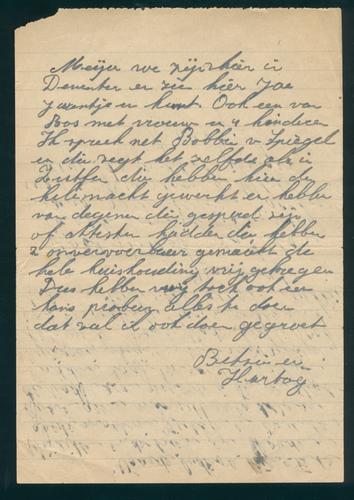 Meijer we zijn hier in
Deventer en zie hier Jae
juventje en hunt. Ook een van
Bos met vrouw en 4 kinderen
Ik spreek net Bobbie v Spiegel
en die zegt het zelfde als in
Zutfen die hebben hier de
hele nacht gewerkt en hebben
van degenen die gesperd zijn
of attesten hadden die hebben
z onvervoerbaar gemaakt de
hele huishouding vrij gekregen
Dus hebben wij toch ook een
kans probeer alles te doen
dat zal ik ook doen gegroet
Betsie en
Hartog